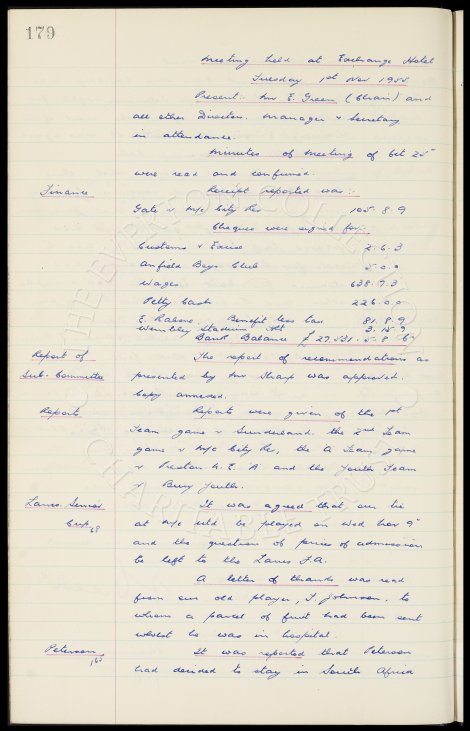 179
Meeting held at Exchange Hotel
Tuesday 1st Nov 1955
Present:- Mr E. Green (Chair) and
all other Directors. Manager & Secretary
in attendance.
Minutes of meeting of Oct 25th
were read and confirmed.
Finance
Receipt reported was:-
Gate v M/c City Res 105. 8. 9
Cheques were signed for:-
Customs & Excise 2. 6. 3
Anfield Boys Club 5. 0. 0
Wages 638. 9. 3
Petty Cash 226. 0. 0
Benefit less tax 81. 8. 9
Wembley Stadium 3. 15. 9
Bank Balance £ 27,531. 5. 8
Report of
Sub-Committee
The report of recommendations as
presented by Mr Sharp was approved.
Copy annexed.
Report
Reports were given of the 1st
Team game v Sunderland. the 2nd Team
game v M/c City Res, the A Team game
v Preston N. E. A and the Youth Team
v Bury Youth.
Lancs. Senior
Cup
It was agreed that our tie
at M/c Utd be played on Wed Nov 9th
and the question of prices of admission
be left to the Lancs F.A.
A letter of thanks was read
from our old player, T. Johnson, to
whom a parcel of fruit had been sent
whilst he was in hospital.
Peterson
It was reported that Peterson
had decided to stay in South Africa
THE EVERTON COLLECTION
CHARITABLE TRUST